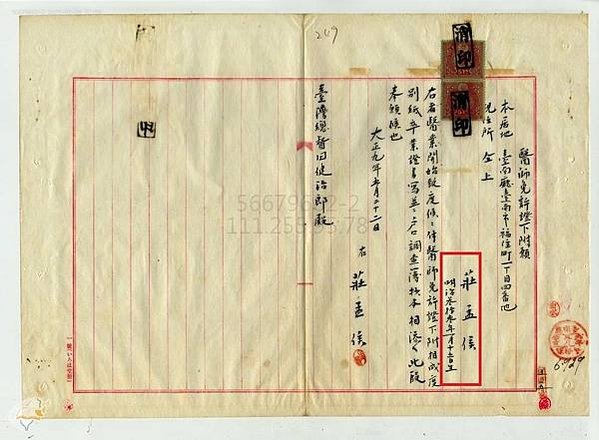 249
消印
消印
醫師免許證下附願
本居地 臺南廳臺南市福住町一丁目四番地
現住所 仝上
莊孟侯
明治參拾參年一月十三日生
右者醫業開始致度候ニ付醫師免許證下附相成度
別紙卒業證書寫並ニ戶口調查簿抄本相添ヘ此段
奉願候也
大正九年五月二十二日
右 莊孟侯
臺灣總督田健治郎殿
56679612-2